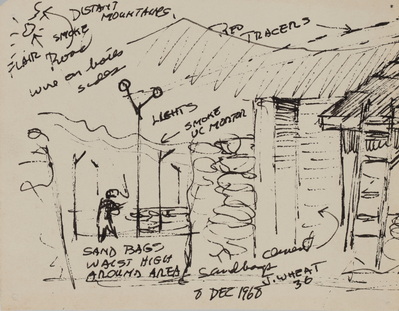 DISTANT
MOUNTAINS
SMOKE
FLAIR
RED TRACERS
wire on both
sides
LIGHTS
SMOKE
VC MORTAR
SAND BAGS
WAIST HIGH
AROUND AREA
Sandbags
cement
J. WHEAT
8 DEC 1968